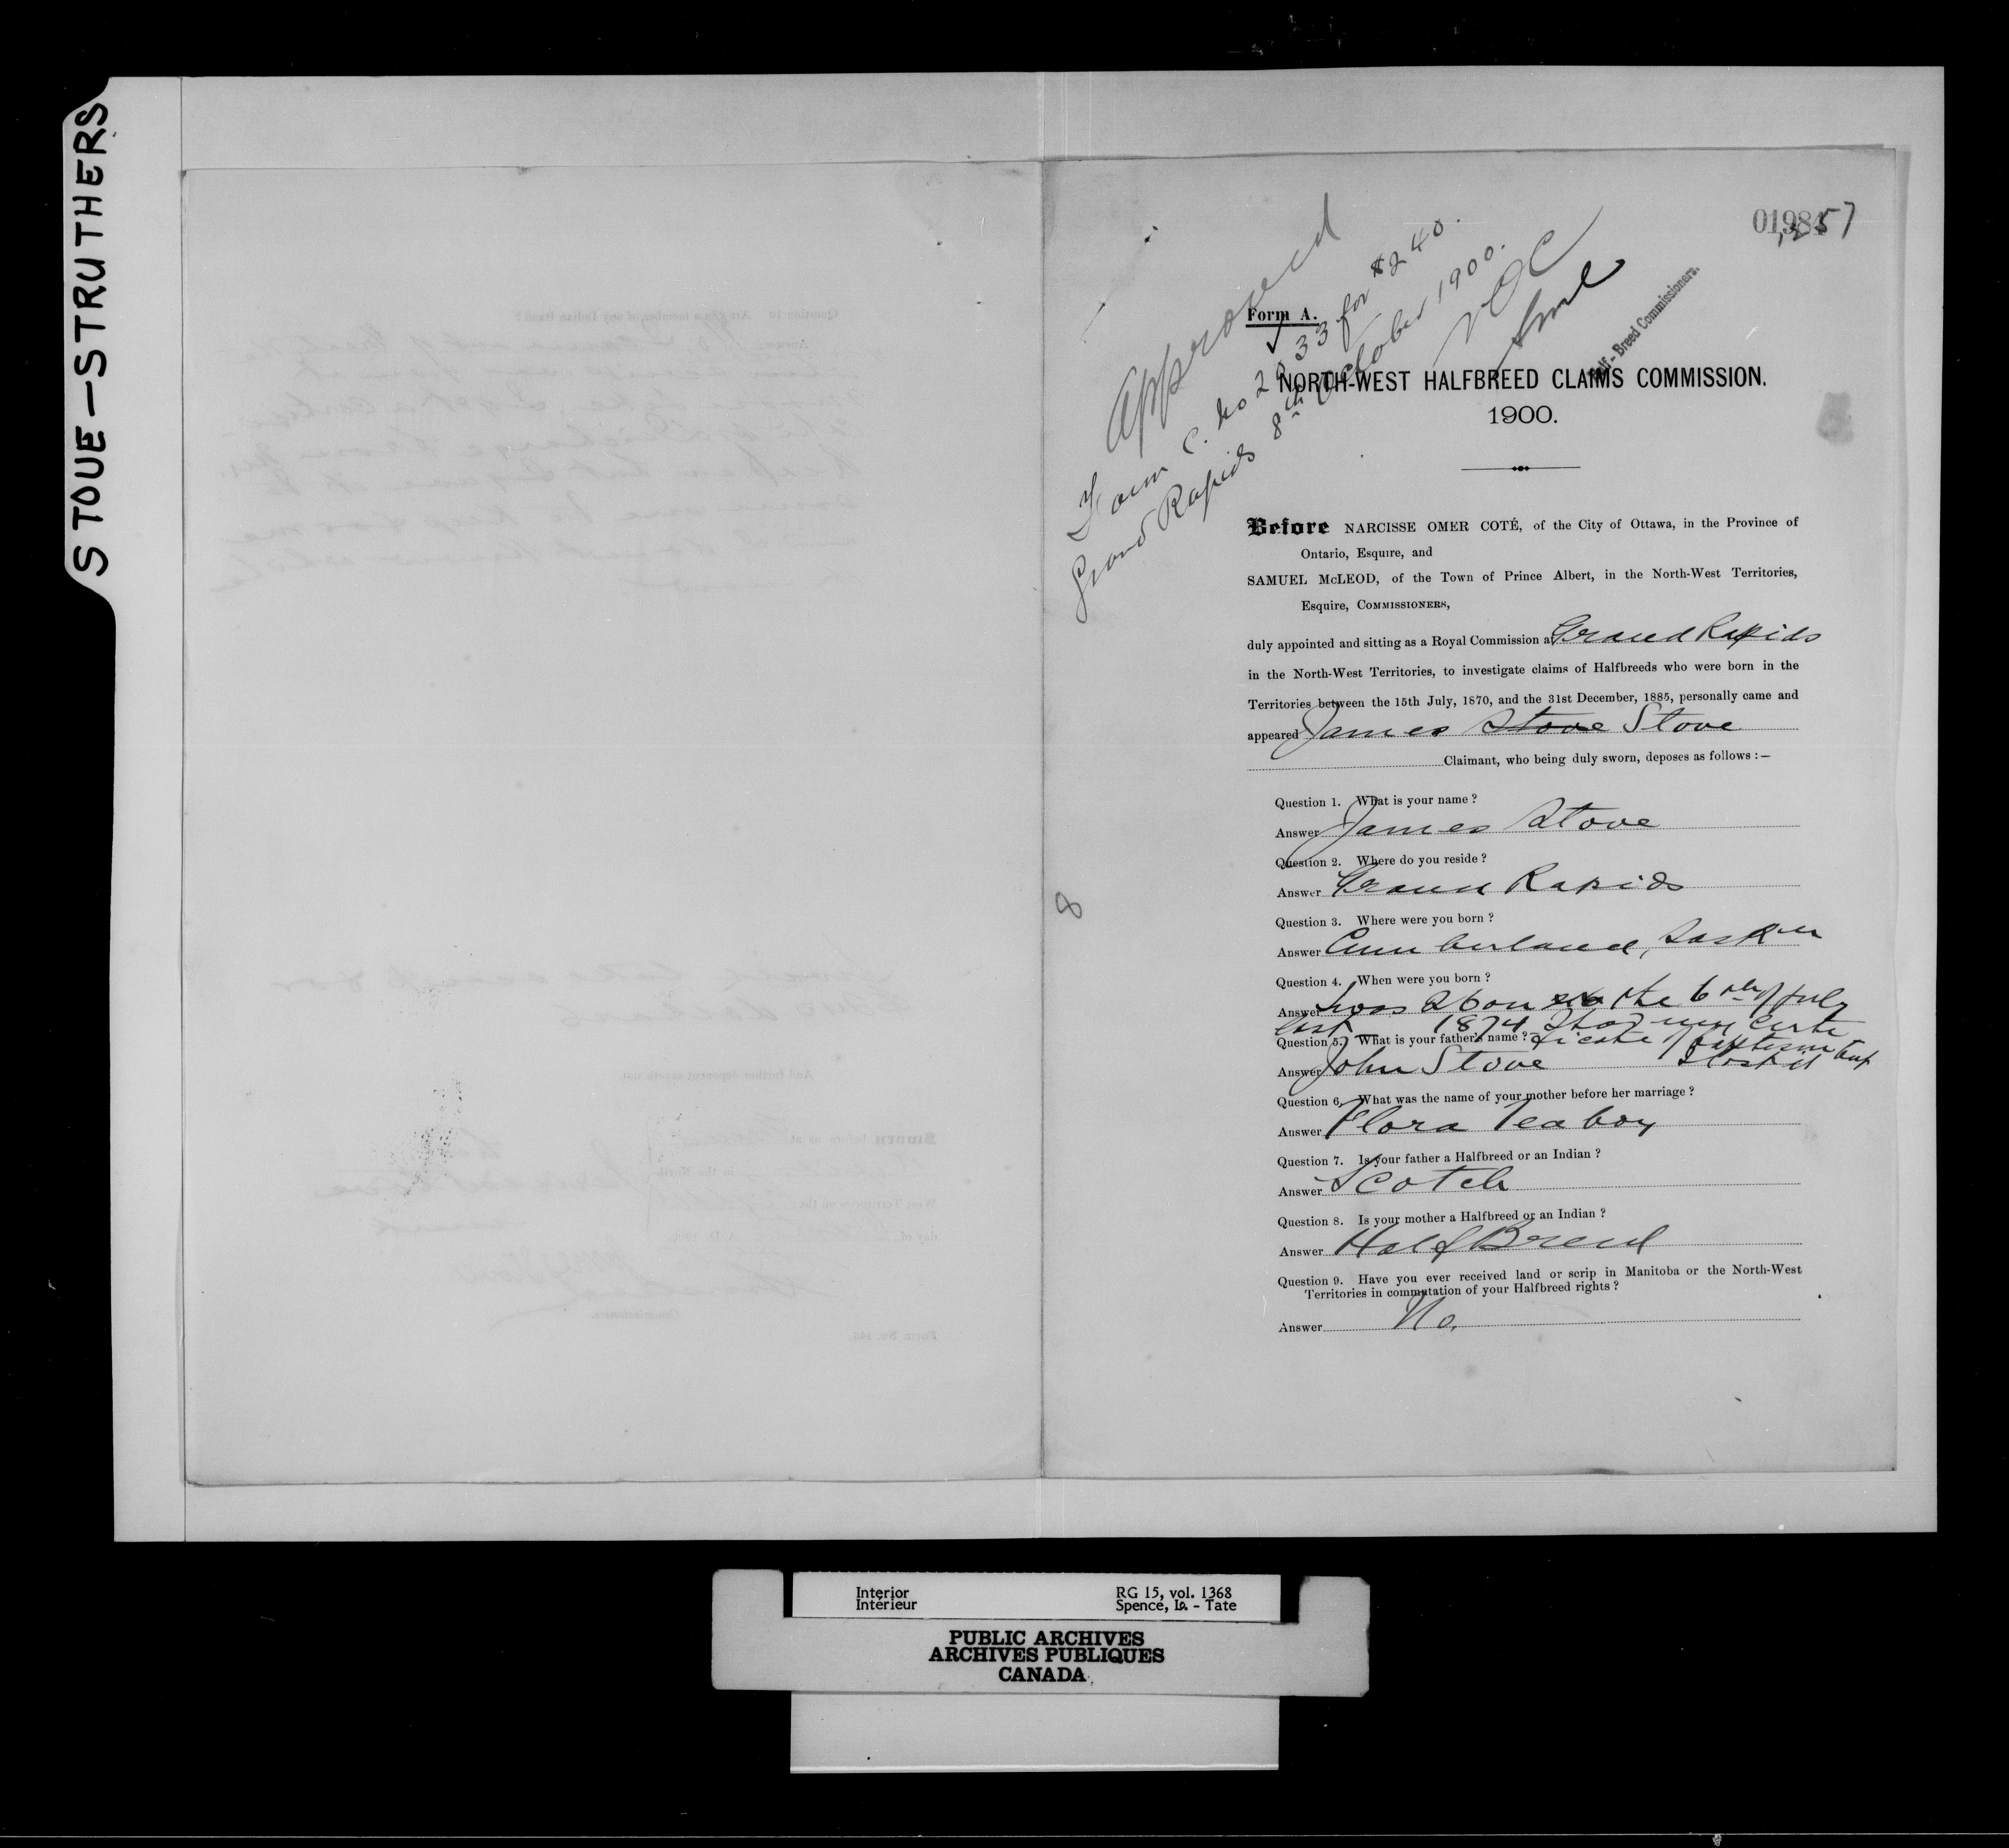 STOUE—STRUTHERS
1257
Approved
Form C. No 2933 for $240.
Grand Rapids 8th October 1900.
NOC
Half-Breed Commissioners.
Form A.
NORTH-WEST HALFBREED CLAIMS COMMISSION.
1900.
Before NARCISSE OMER COTÉ, of the City of Ottawa, in the Province of
Ontario, Esquire, and
SAMUEL McLEOD, of the Town of Prince Albert, in the North-West Territories,
Esquire, COMMISSIONERS,
duly appointed and sitting as a Royal Commission at Grand Rapids
in the North-West Territories, to investigate claims of Halfbreeds who were born in the
Territories between the 15th July, 1870, and the 31st December, 1885, personally came and
appeared James Stove Stove
Claimant, who being duly sworn, deposes as follows :—
Question 1. What is your name ?
Answer James Stove
Question 2. Where do you reside ?
Answer Grand Rapids
Question 3. Where were you born ?
Answer Cumberland, Sask
Question 4. When were you born ?
Answer was 26 on the 6th of July
last — 1874 I had my certi
Question 5. What is your father's name ? ficate of baptism but
Answer John Stove I lost it
Question 6. What was the name of your mother before her marriage ?
Answer Flora Teaboy
Question 7. Is your father a Halfbreed or an Indian ?
Answer Scotch
Question 8. Is your mother a Halfbreed or an Indian ?
Answer Half Breed
Question 9. Have you ever received land or scrip in Manitoba or the North-West
Territories in commutation of your Halfbreed rights ?
Answer No.
8
Interior
Intérieur
RG 15, vol. 1368
Spence, Ia. - Tate
PUBLIC ARCHIVES
ARCHIVES PUBLIQUES
CANADA